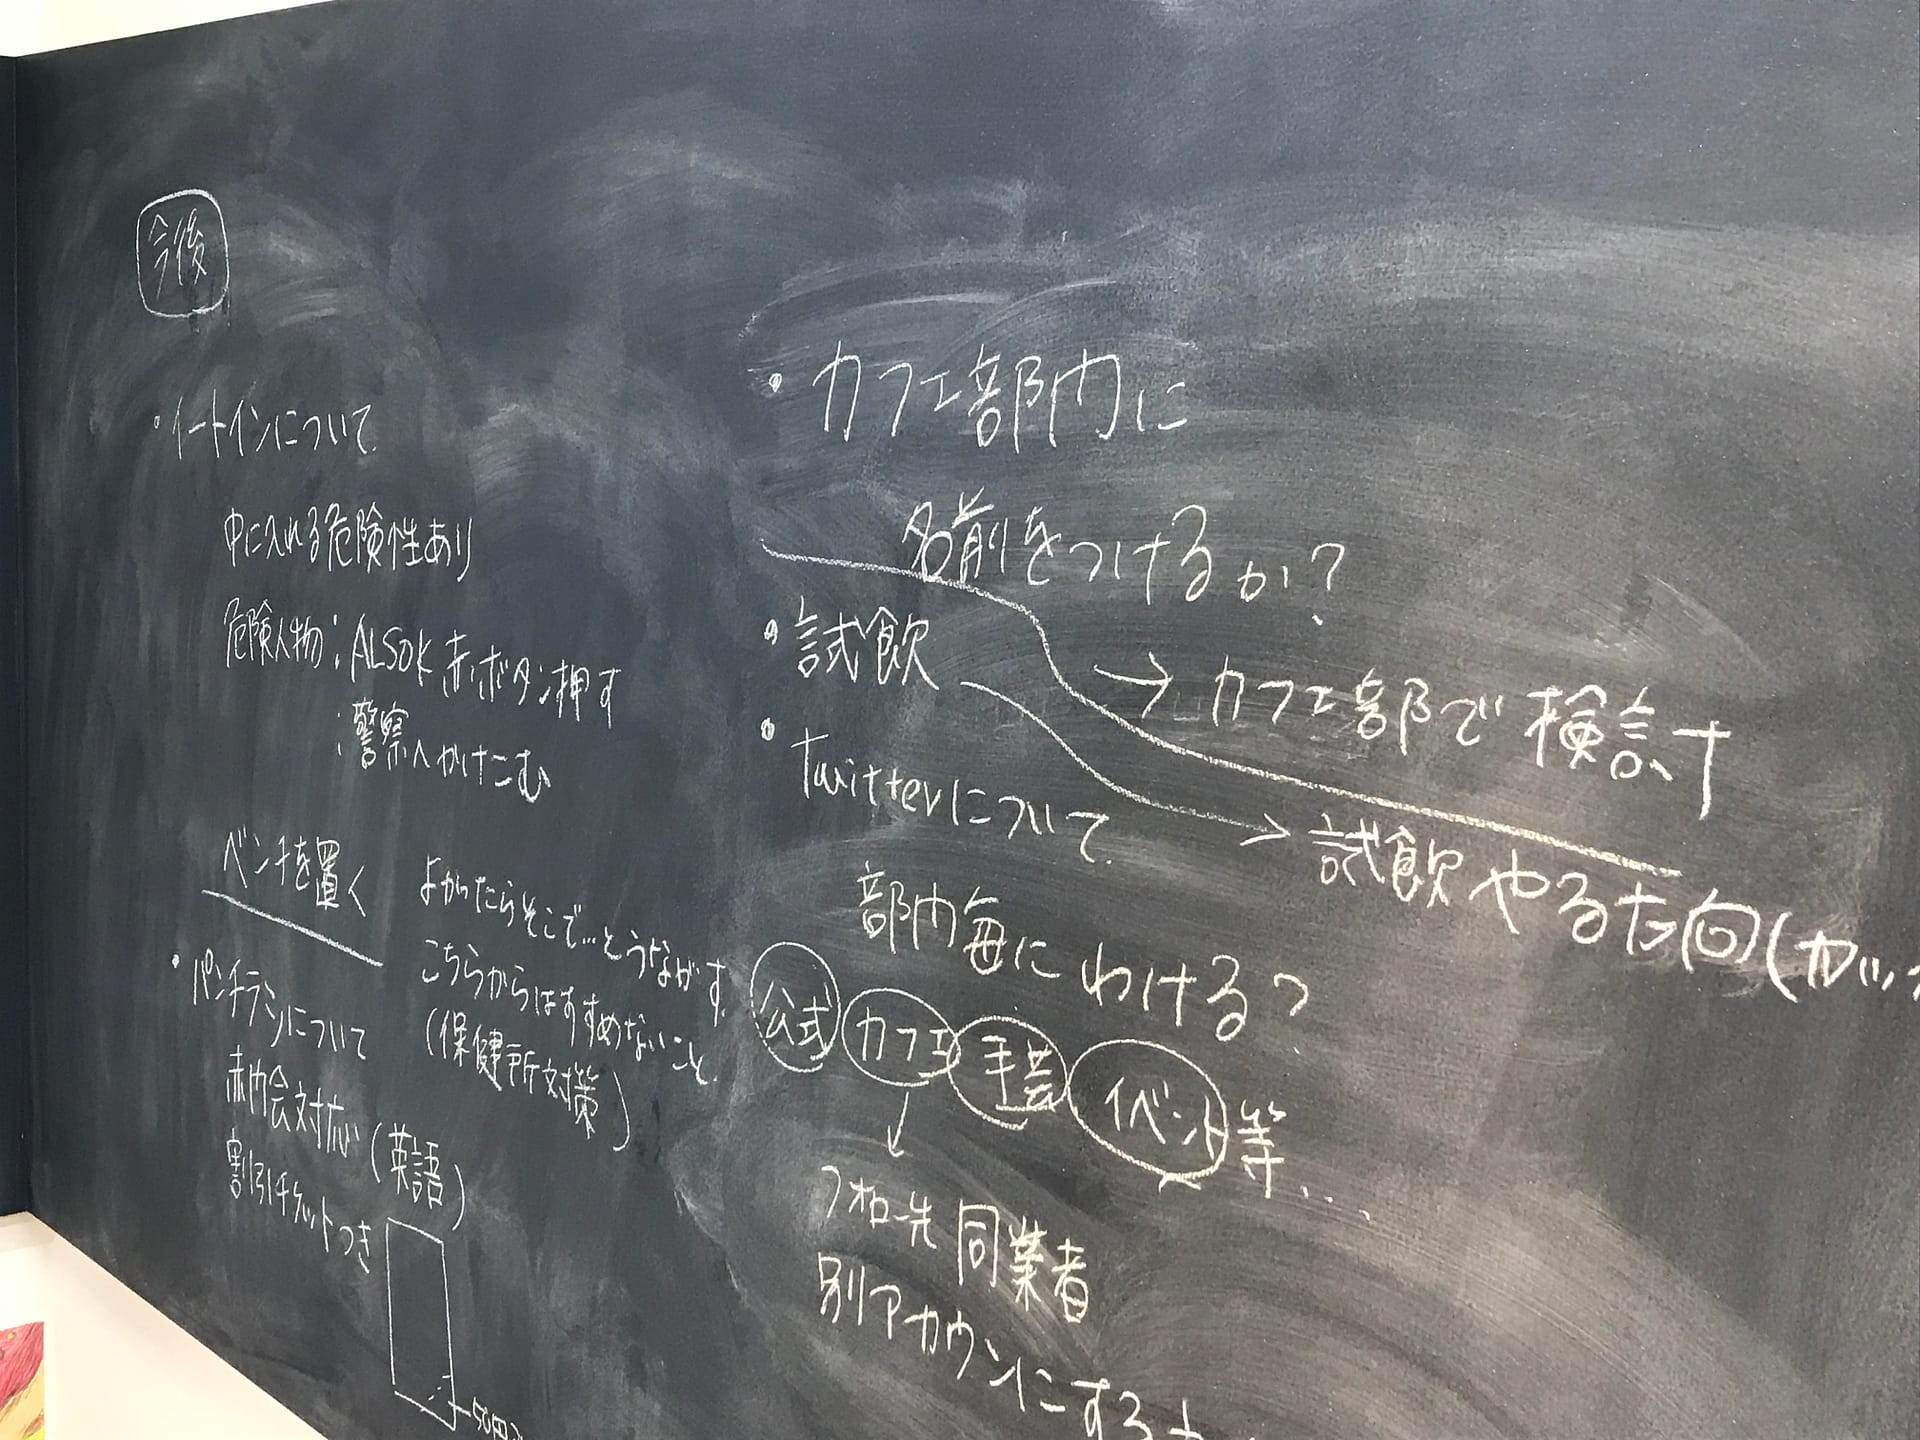 今後
・イートインについて
中に入れる危険性あり
危険人物：ALSOK 赤ボタン押す
：警察へかけこむ
ベンチを置く
よかったらそこで…とうながす。
こちらからはすすめないこと。
(保健所対策)
・パンチラシについて
町内会対応(英語)
割引チケットつき
50円
・カフェ部内に
名前をつけるか?
→カフェ部で検討
・試飲
→試飲やる方向(カッ
・Twitterについて
部内毎にわける?
公式 カフェ 手芸 イベント 等…
↓
フォロー先 同業者
別アカウントにする